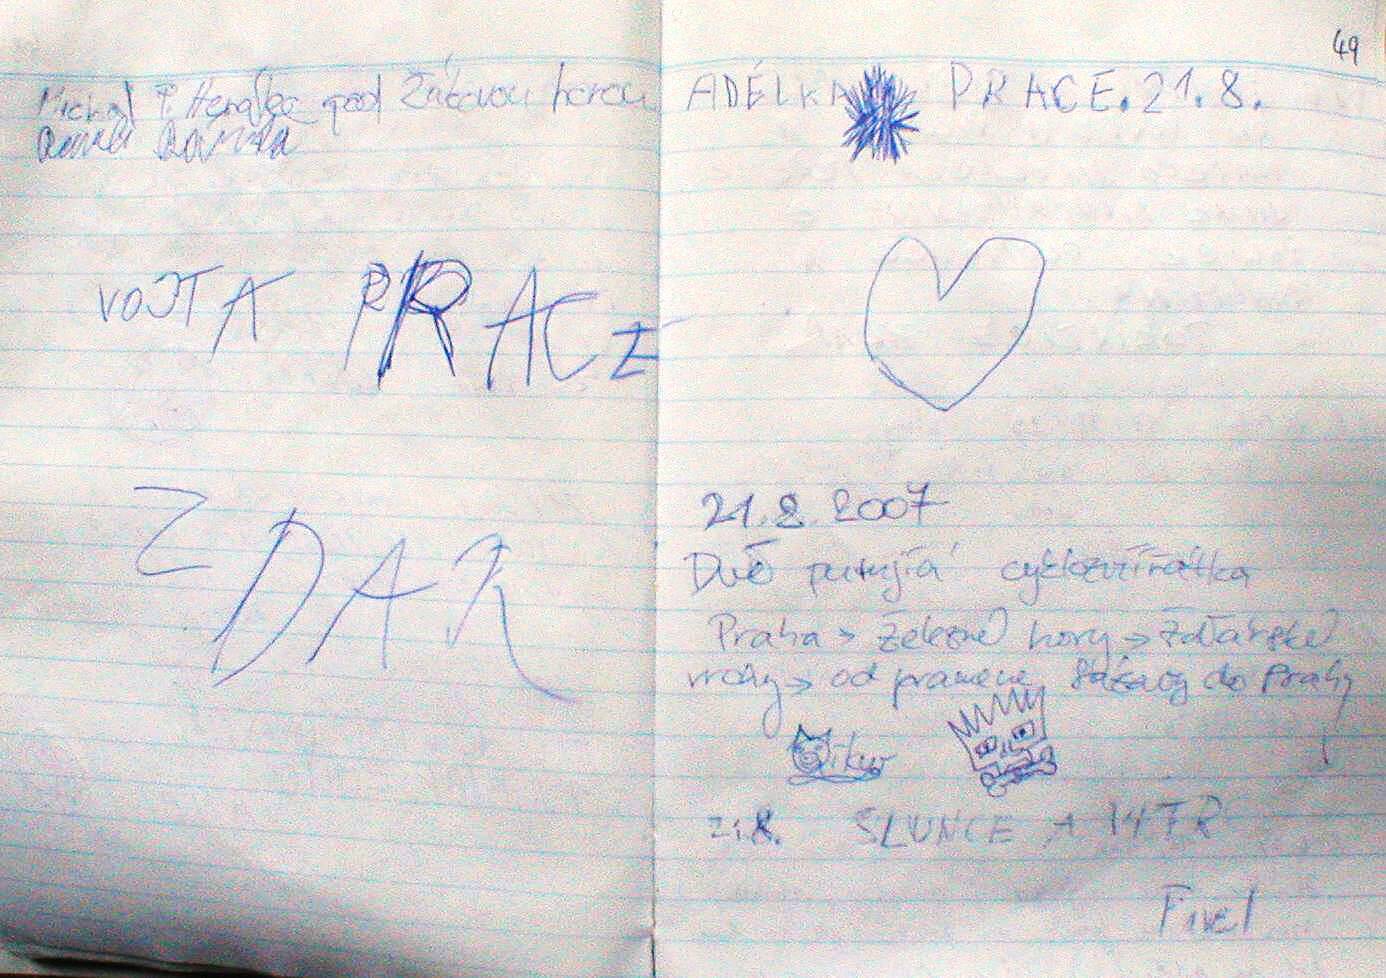 Michal P. Herálec pod Žákovou horou
VOJTA PRACE
ZDAR
49
ADÉLKA PRACE. 21. 8.
21. 8. 2007
Dvě putující cyklozvířátka
Praha > Železné hory > Žďárské
vrchy > od pramene Sázavy do Prahy
21. 8. SLUNCE A VÍTR